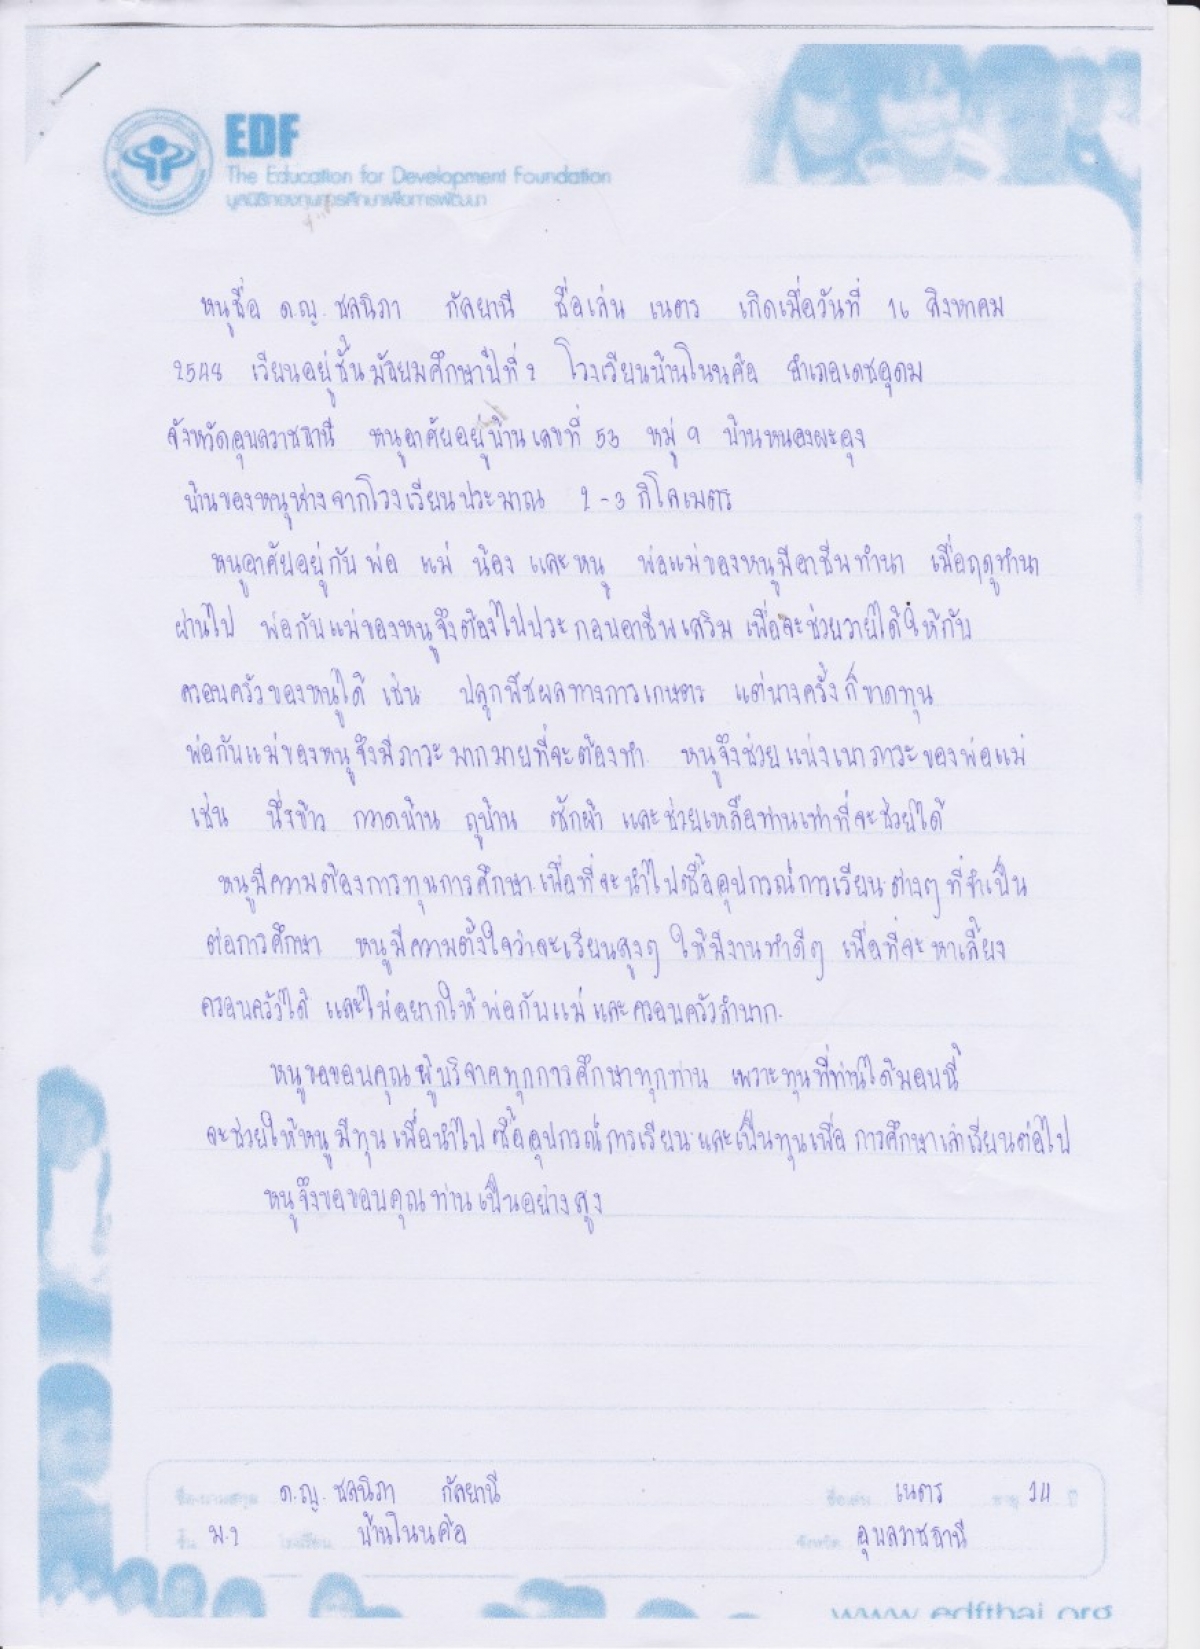 EDF
The Education for Development Foundation
มูลนิธิกองทุนการศึกษาเพื่อการพัฒนา
หนูชื่อ ด.ญ. ชลนิภา กัลยานี ชื่อเล่น เนตร เกิดเมื่อวันที่ 16 สิงหาคม
2548 เรียนอยู่ชั้นมัธยมศึกษาปีที่ 2 โรงเรียนบ้านโนนศ้อ อำเภอเดชอุดม
จังหวัดอุบลราชธานี หนูอาศัยอยู่บ้านเลขที่ 53 หมู่ 9 บ้านหนองผะอุง
บ้านของหนูห่างจากโรงเรียนประมาณ 2-3 กิโลเมตร
หนูอาศัยอยู่กับ พ่อ แม่ น้อง และหนู พ่อแม่ของหนูมีอาชีพทำนา เมื่อฤดูทำนา
ผ่านไป พ่อกับแม่ของหนูจึงต้องไปประกอบอาชีพเสริม เพื่อจะช่วยรายได้ให้กับ
ครอบครัวของหนูได้ เช่น ปลูกพืชผลทางการเกษตร แต่บางครั้งก็ขาดทุน
พ่อกับแม่ของหนูจึงมีภาระมากมายที่จะต้องทำ หนูจึงช่วยแบ่งเบาภาระของพ่อแม่
เช่น นึ่งข้าว กวาดบ้าน ถูบ้าน ซักผ้า และช่วยเหลือท่านเท่าที่จะช่วยได้
หนูมีความต้องการทุนการศึกษา เพื่อที่จะนำไปซื้ออุปกรณ์การเรียนต่างๆ ที่จำเป็น
ต่อการศึกษา หนูมีความตั้งใจว่าจะเรียนสูงๆ ให้มีงานทำดีๆ เพื่อที่จะหาเลี้ยง
ครอบครัวได้ และไม่อยากให้พ่อกับแม่ และครอบครัวลำบาก.
หนูขอขอบคุณผู้บริจาคทุกการศึกษาทุกท่าน เพราะทุนที่ท่านได้มอบนี้
จะช่วยให้หนูมีทุน เพื่อนำไปซื้ออุปกรณ์การเรียน และเป็นทุนเพื่อการศึกษาเล่าเรียนต่อไป
หนูจึงขอขอบคุณท่านเป็นอย่างสูง
ชื่อ-นามสกุล ด.ญ. ชลนิภา กัลยานี ชื่อเล่น เนตร อายุ 14 ปี
ชั้น ม.2 โรงเรียน บ้านโนนศ้อ จังหวัด อุบลราชธานี
www.edfthai.org